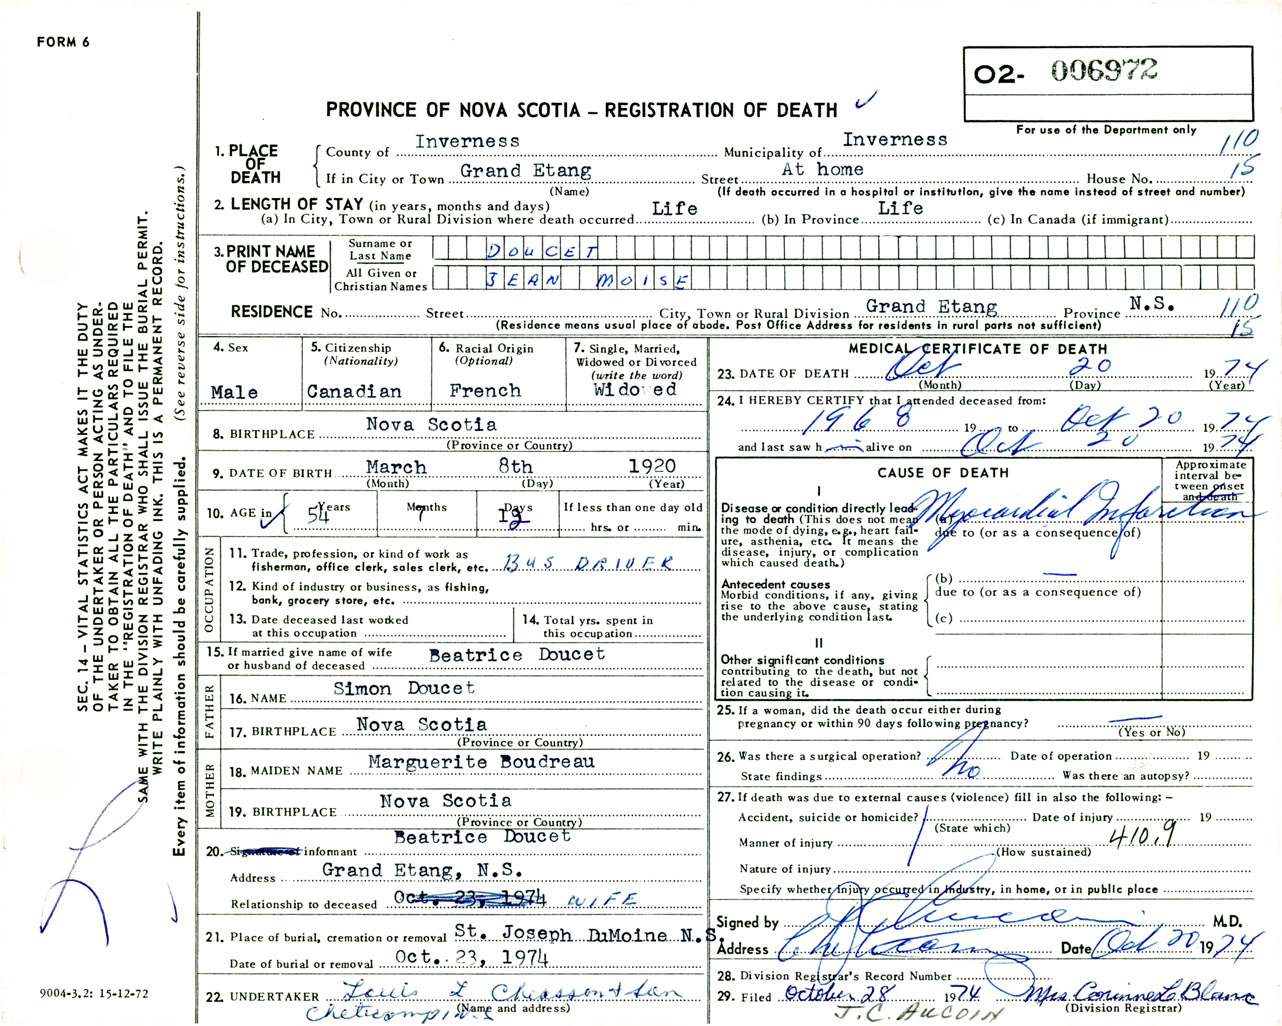 FORM 6
O2- 006972
For use of the Department only
PROVINCE OF NOVA SCOTIA – REGISTRATION OF DEATH
1. PLACE OF DEATH
County of Inverness Municipality of Inverness 110
If in City or Town Grand Etang Street At home House No. 15
(Name) (If death occurred in a hospital or institution, give the name instead of street and number)
2. LENGTH OF STAY (in years, months and days)
(a) In City, Town or Rural Division where death occurred Life (b) In Province Life (c) In Canada (if immigrant)
3. PRINT NAME OF DECEASED
Surname or Last Name DOUCET
All Given or Christian Names JEAN MOISE
RESIDENCE No. Street City, Town or Rural Division Grand Etang Province N.S. 110
(Residence means usual place of abode. Post Office Address for residents in rural parts not sufficient) 15
4. Sex Male
5. Citizenship (Nationality) Canadian
6. Racial Origin (Optional) French
7. Single, Married, Widowed or Divorced (write the word) Widowed
8. BIRTHPLACE Nova Scotia
(Province or Country)
9. DATE OF BIRTH March 8th 1920
(Month) (Day) (Year)
10. AGE in Years 54 Months 7 Days 12 If less than one day old hrs. or min.
OCCUPATION
11. Trade, profession, or kind of work as fisherman, office clerk, sales clerk, etc. BUS DRIVER
12. Kind of industry or business, as fishing, bank, grocery store, etc.
13. Date deceased last worked at this occupation
14. Total yrs. spent in this occupation
15. If married give name of wife or husband of deceased Beatrice Doucet
FATHER
16. NAME Simon Doucet
17. BIRTHPLACE Nova Scotia
(Province or Country)
MOTHER
18. MAIDEN NAME Marguerite Boudreau
19. BIRTHPLACE Nova Scotia
(Province or Country)
20. Signature of informant Beatrice Doucet
Address Grand Etang, N.S.
Relationship to deceased Oct. 23, 1974 WIFE
21. Place of burial, cremation or removal St. Joseph DuMoine N.S.
Date of burial or removal Oct. 23, 1974
22. UNDERTAKER Louis L Chiasson & Son
Cheticamp N.S. (Name and address)
MEDICAL CERTIFICATE OF DEATH
23. DATE OF DEATH Oct 20 1974
(Month) (Day) (Year)
24. I HEREBY CERTIFY that I attended deceased from:
1968 19 to Oct 20 1974
and last saw h im alive on Oct 20 1974
CAUSE OF DEATH
Approximate interval between onset and death
I
Disease or condition directly leading to death (This does not mean the mode of dying, e.g., heart failure, asthenia, etc. It means the disease, injury, or complication which caused death.)
(a) Myocardial Infarction
due to (or as a consequence of)
Antecedent causes
Morbid conditions, if any, giving rise to the above cause, stating the underlying condition last.
(b) —
due to (or as a consequence of)
(c)
II
Other significant conditions
contributing to the death, but not related to the disease or condition causing it.
25. If a woman, did the death occur either during pregnancy or within 90 days following pregnancy? —
(Yes or No)
26. Was there a surgical operation? No Date of operation 19
State findings Was there an autopsy?
27. If death was due to external causes (violence) fill in also the following: –
Accident, suicide or homicide? Date of injury 19
(State which)
Manner of injury 410.9
(How sustained)
Nature of injury
Specify whether injury occurred in Industry, in home, or in public place
Signed by M.D.
Address Cheticamp Date Oct 20 1974
28. Division Registrar's Record Number
29. Filed October 28 1974 Mrs Corinne LeBlanc
J.C. AUCOIN (Division Registrar)
SEC. 14 – VITAL STATISTICS ACT MAKES IT THE DUTY
OF THE UNDERTAKER OR PERSON ACTING AS UNDER-
TAKER TO OBTAIN ALL THE PARTICULARS REQUIRED
IN THE "REGISTRATION OF DEATH" AND TO FILE THE
SAME WITH THE DIVISION REGISTRAR WHO SHALL ISSUE THE BURIAL PERMIT.
WRITE PLAINLY WITH UNFADING INK. THIS IS A PERMANENT RECORD.
Every item of information should be carefully supplied. (See reverse side for instructions.)
9004-3.2: 15-12-72